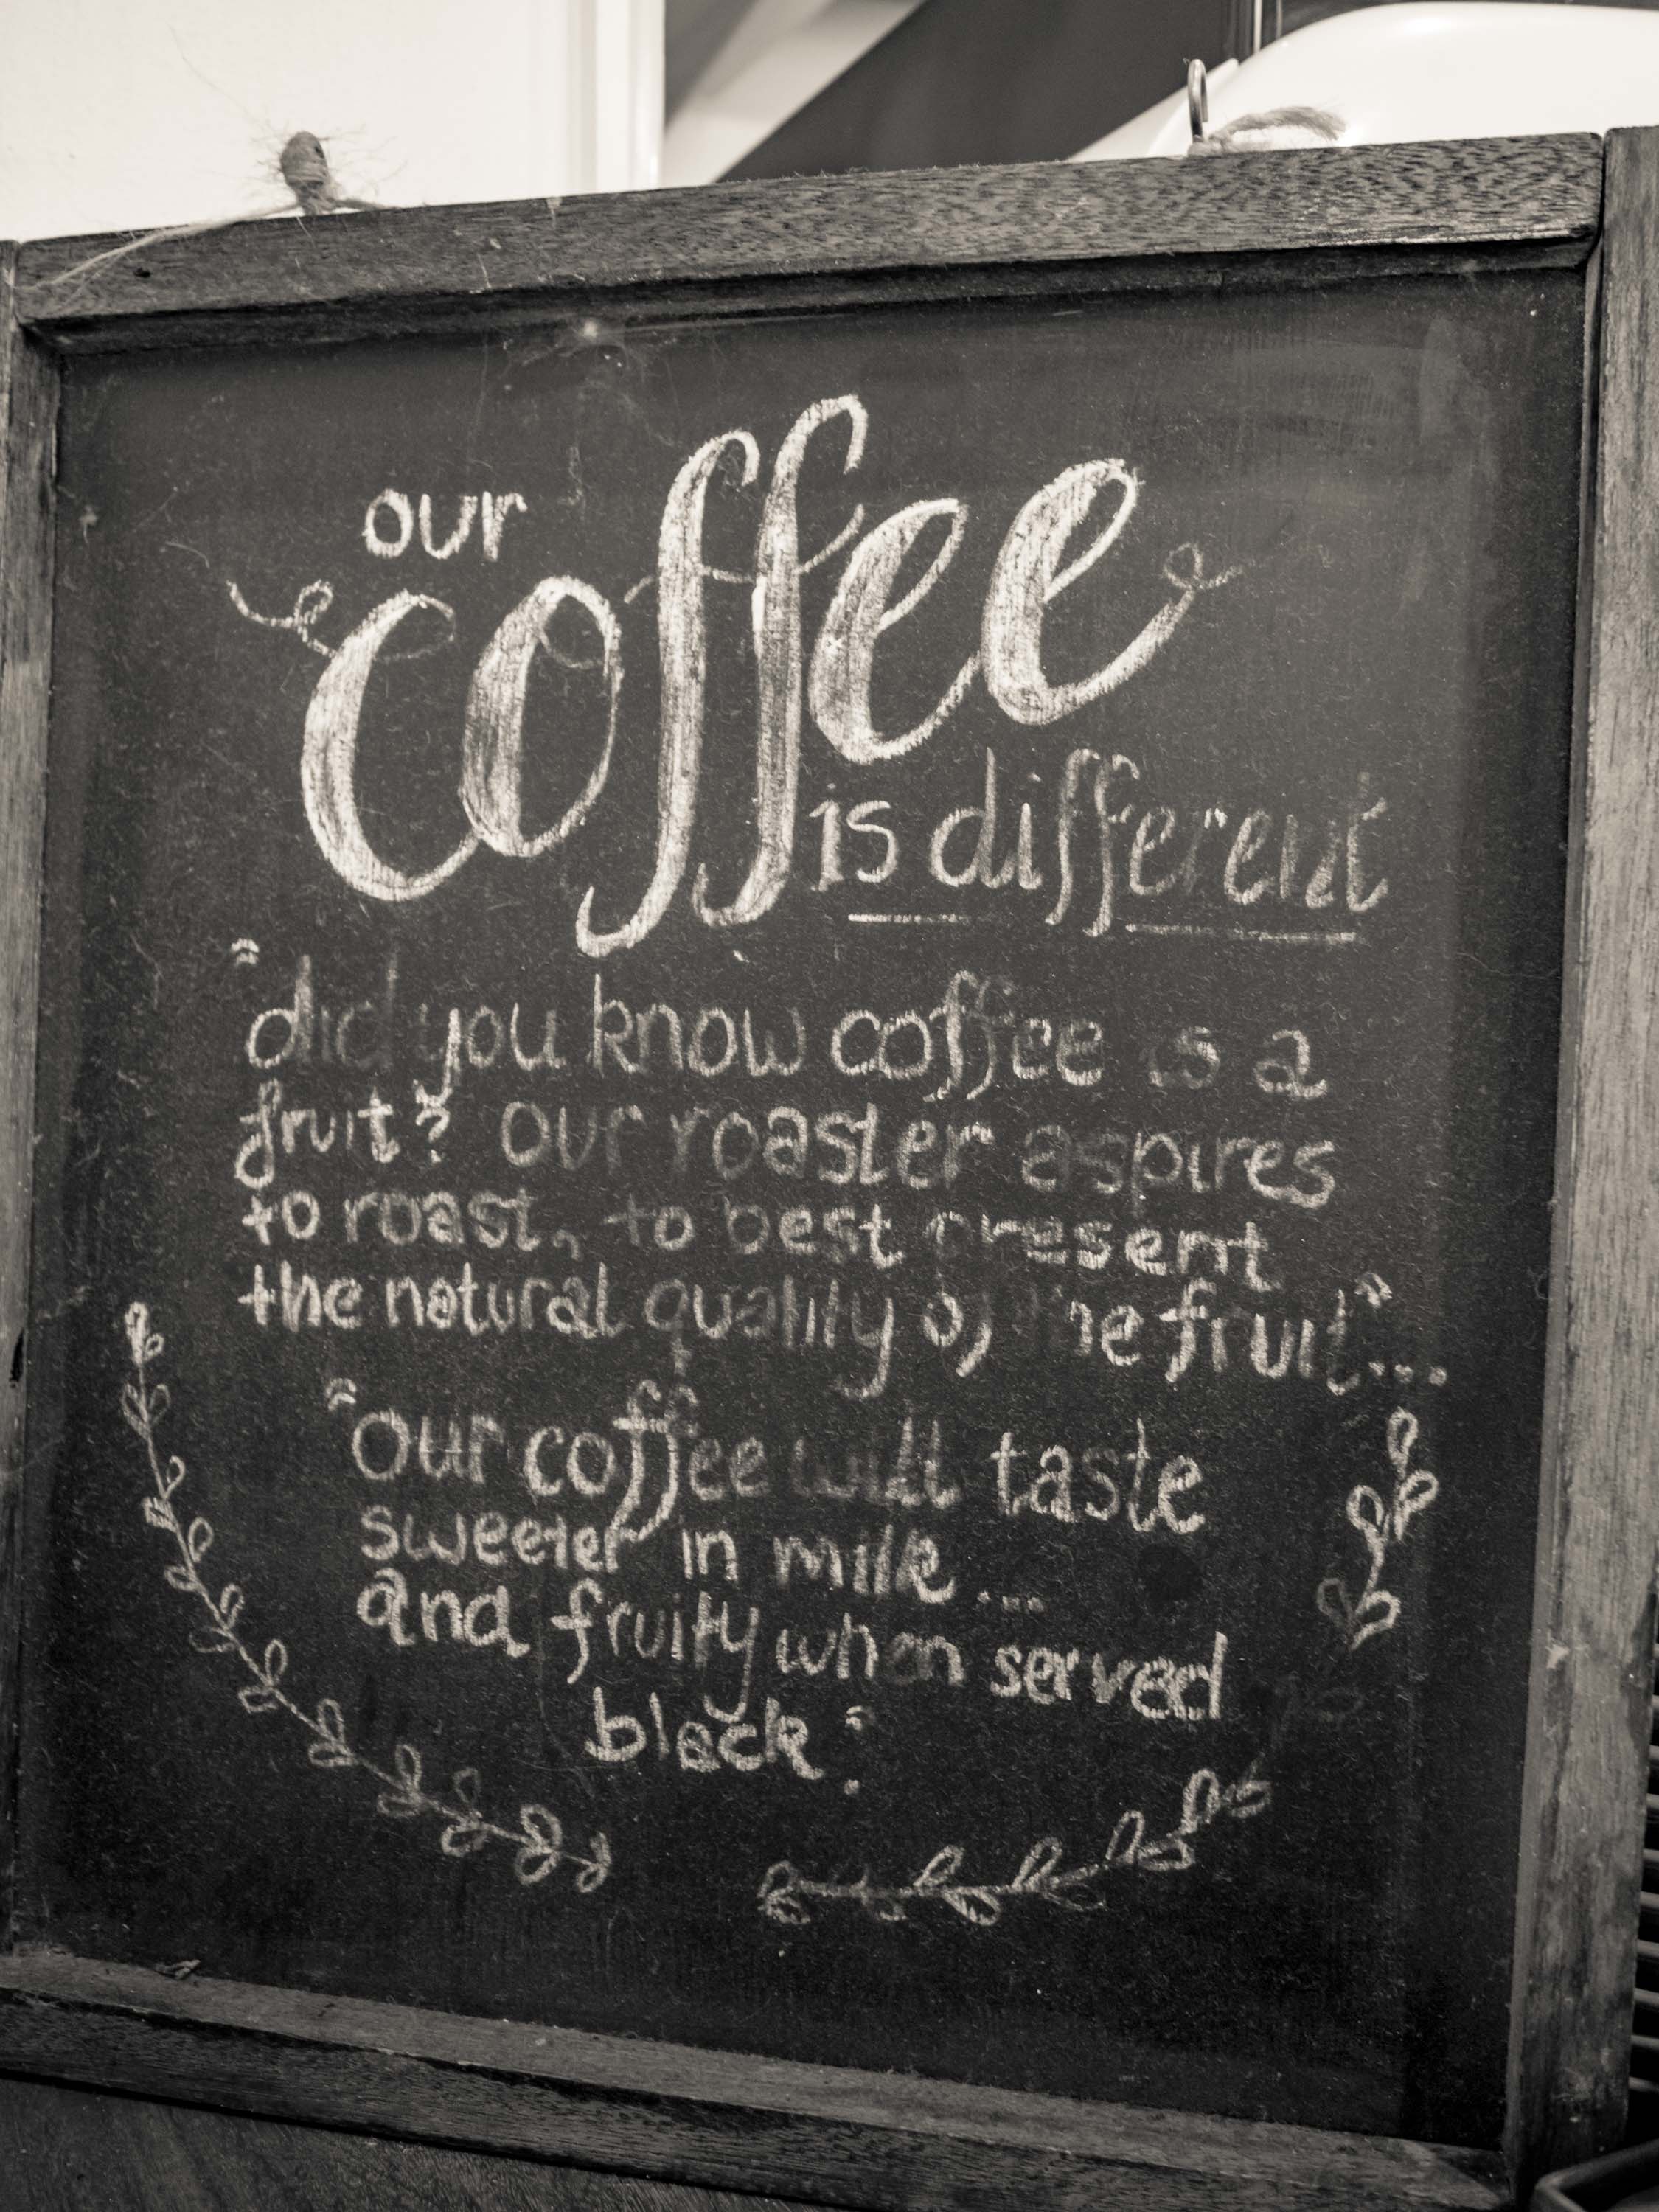 our
coffee
is different
"did you know coffee is a
fruit? our roaster aspires
to roast, to best present
the natural quality of the fruit"...
"our coffee will taste
sweeter in milk...
and fruity when served
black".